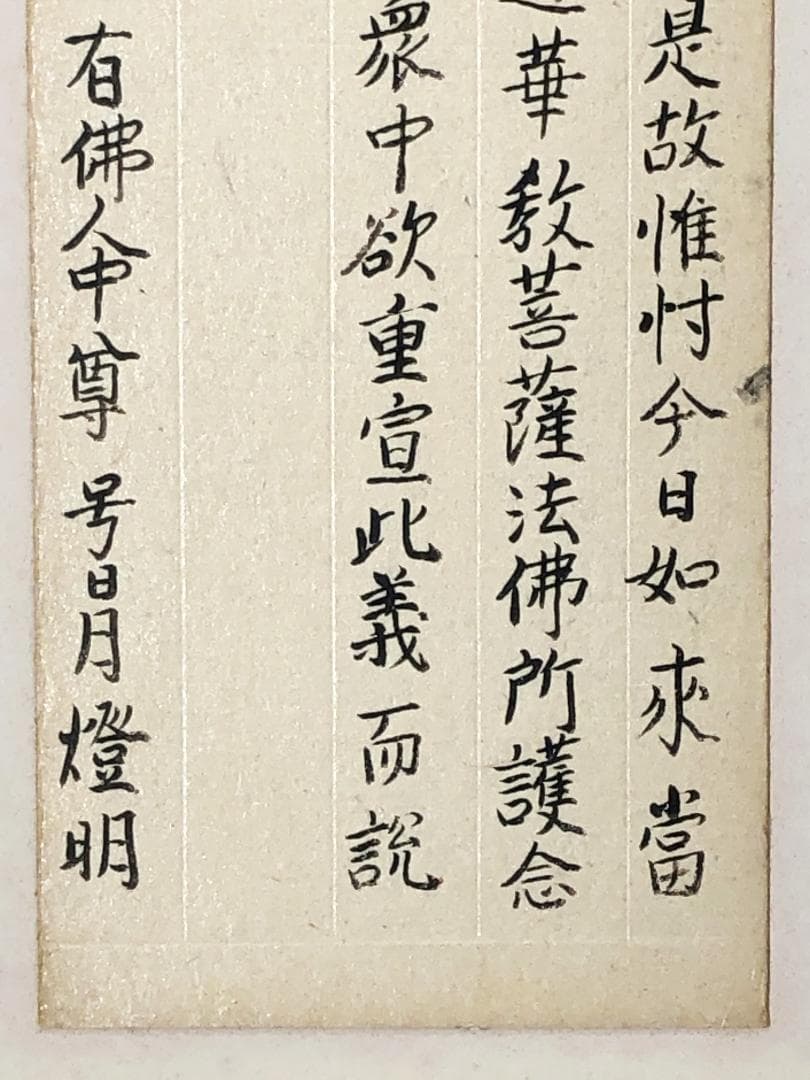 是故惟忖今日如來當
華教菩薩法佛所護念
眾中欲重宣此義而說
有佛人中尊号日月燈明